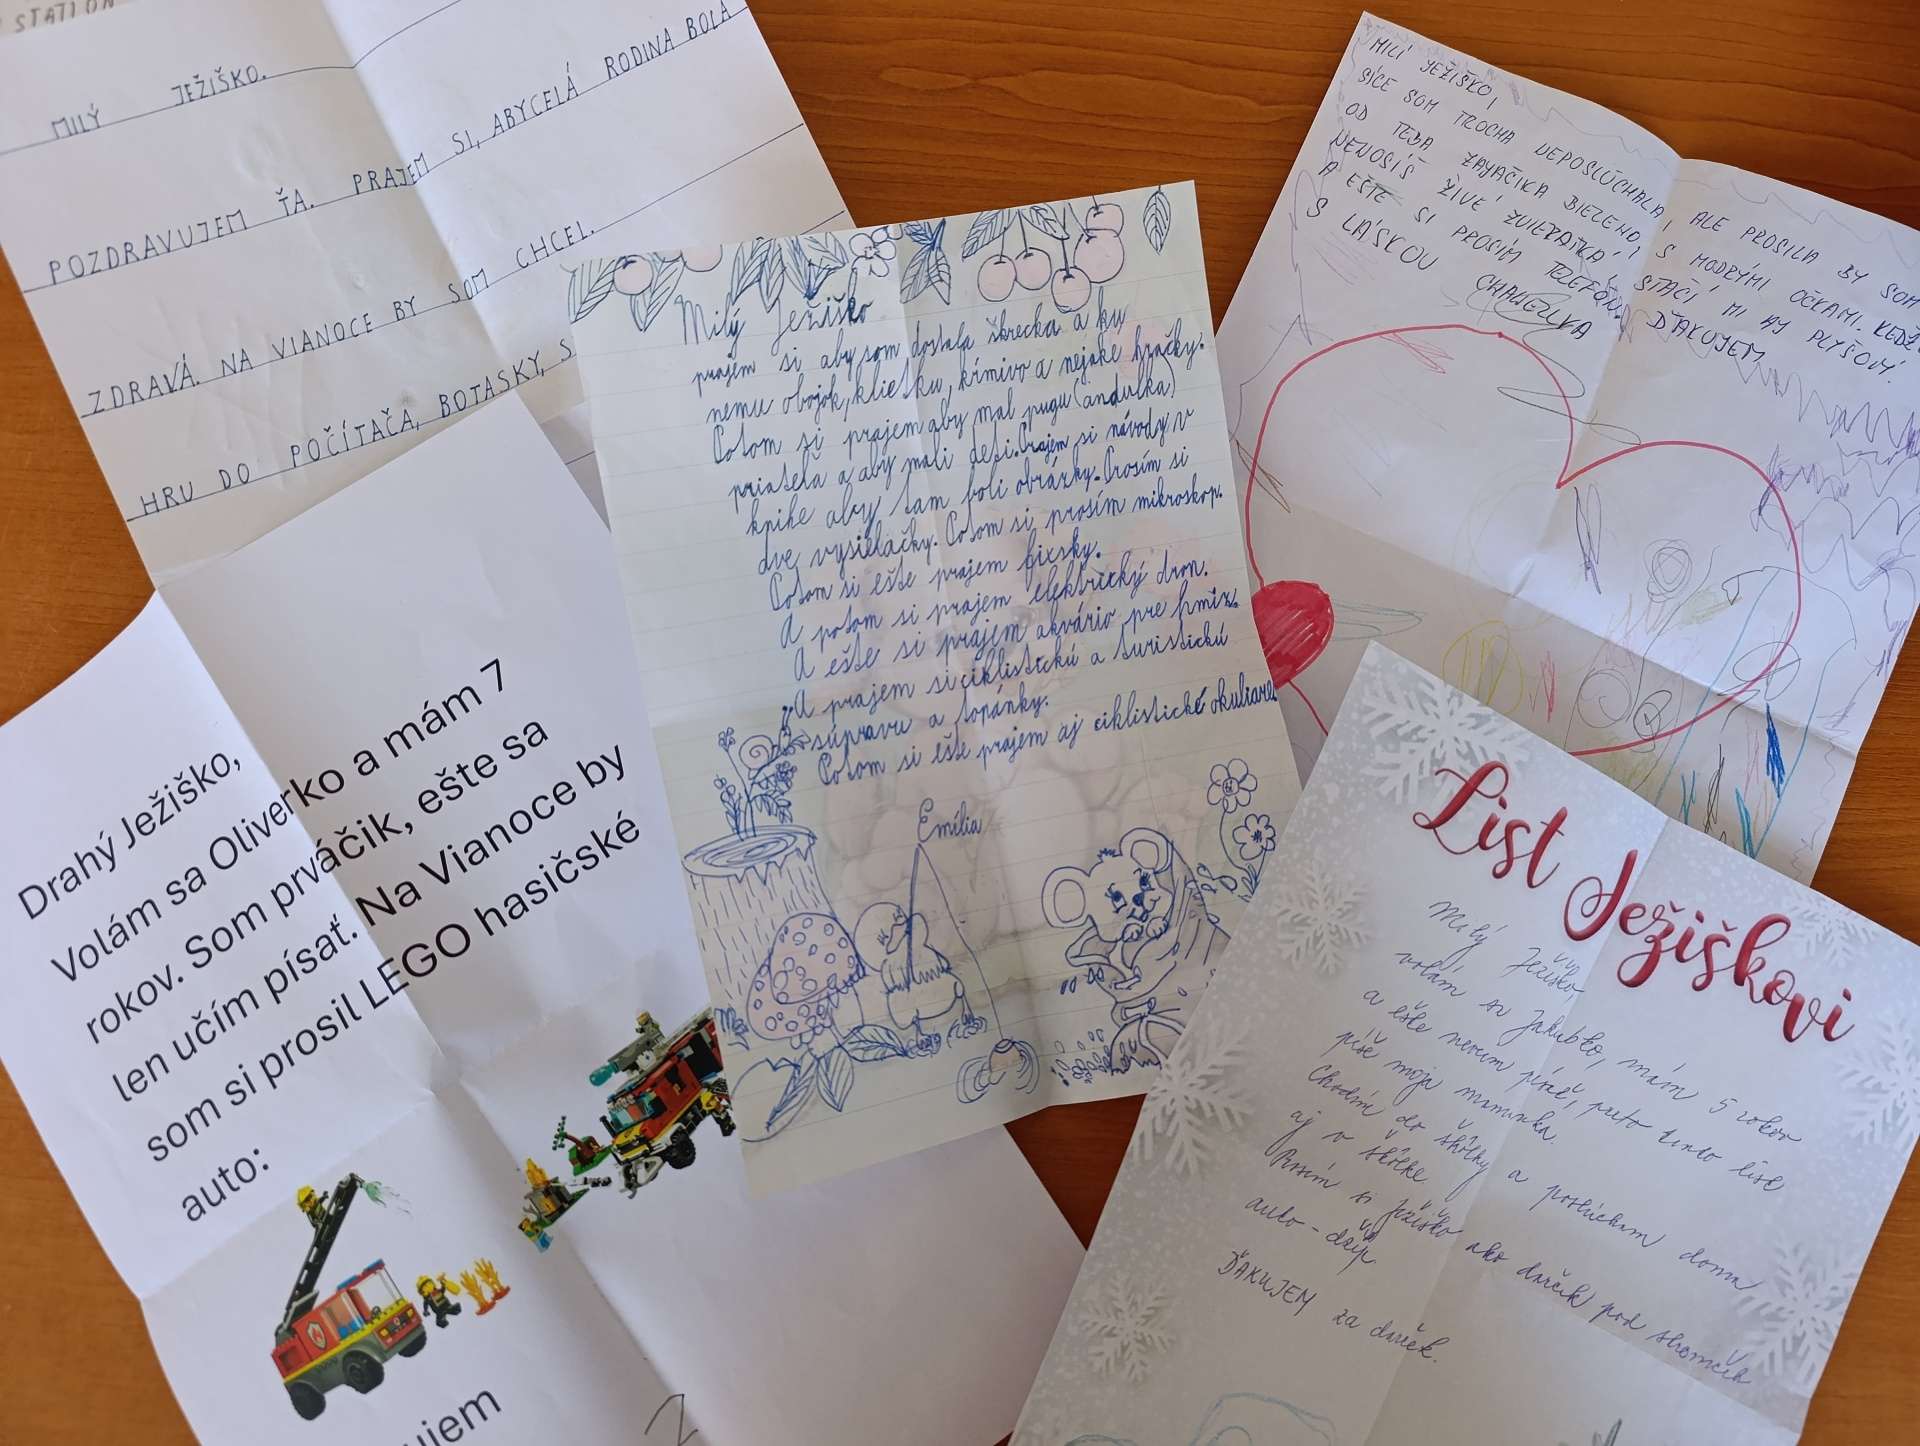 STATION
MILÝ JEŽIŠKO.
POZDRAVUJEM ŤA. PRAJEM SI, ABYCELÁ RODINA BOLA
ZDRAVÁ. NA VIANOCE BY SOM CHCEL.
HRU DO POČÍTAČA, BOTASKY, S
Drahý Ježiško,
Volám sa Oliverko a mám 7
rokov. Som prváčik, ešte sa
len učím písať. Na Vianoce by
som si prosil LEGO hasičské
auto:
ujem
Milý Ježiško
prajem si aby som dostala škrecka a ku
nemu obojok, klietku, kŕmivo a nejake hračky.
Potom si prajem aby mal pugu (andulka)
priatela a aby mali deti. Prajem si návody v
knihe aby tam boli obrázky. Prosím si
dve vysielačky. Potom si prosím mikroskop.
Potom si ešte prajem fixsky.
A potom si prajem elektrický dron.
A ešte si prajem akvário pre hmiz.
A prajem si ciklistickú a turistickú
súpravu a topánky.
Potom si ešte prajem aj ciklistické okuliare.
Emília
MILÍ JEŽIŠKO,
SÍCE SOM TROCHA NEPOSLÚCHALA, ALE PROSILA BY SOM
OD TEBA ZAJAČIKA BIELEHO, S MODRÝMI OČKAMI. KEDŽE
NENOSÍŠ ŽIVÉ ZVIERATKÁ, STAČÍ MI AJ PLYŠOVÝ.
A EŠTE SI PROSÍM TELEFÓN. ĎAKUJEM
S LÁSKOU
List Ježiškovi
Milý Ježiško
volám sa Jakubko, mám 5 rokov
a ešte neviem písať, preto tento list
píše moja maminka.
Chodím do škôlky a poslúcham doma
aj v škôlke
Prosím si Ježiško ako darček pod stromček
auto - džíp
ĎAKUJEM za darček.